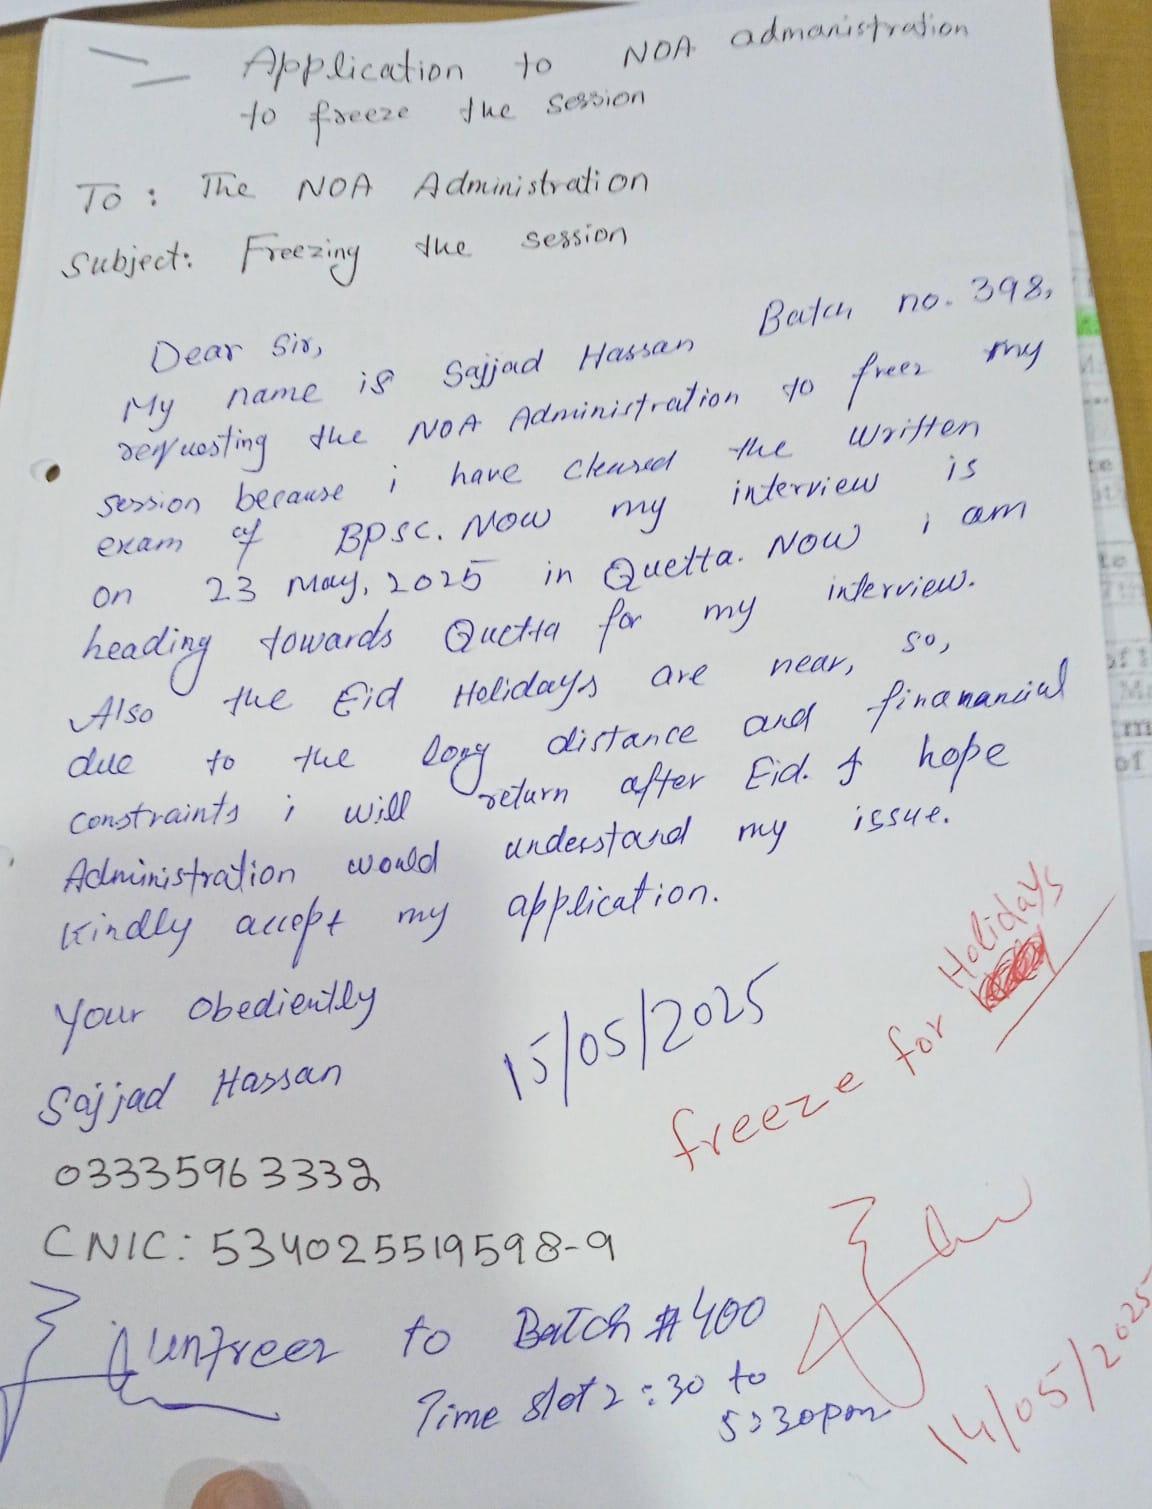 Application to NOA admanistration
to freeze the session
To : The NOA Administration
Subject: Freezing the session
Dear Sir,
My name is Sajjad Hassan Batch no. 398,
requesting the NOA Administration to freez my
session because i have cleared the written
exam of BPSC. Now my interview is
on 23 May, 2025 in Quetta. Now i am
heading towards Quetta for my interview.
Also the Eid Holidays are near, so,
due to the long distance and finanancial
constraints i will return after Eid. I hope
Administration would understand my issue.
Kindly accept my application.
Your Obediently
Sajjad Hassan
03335963332
CNIC: 534025519598-9
15/05/2025
freeze for Holidays
14/05/2025
unfreez to Batch #400
Time slot 2:30 to
5:30pm